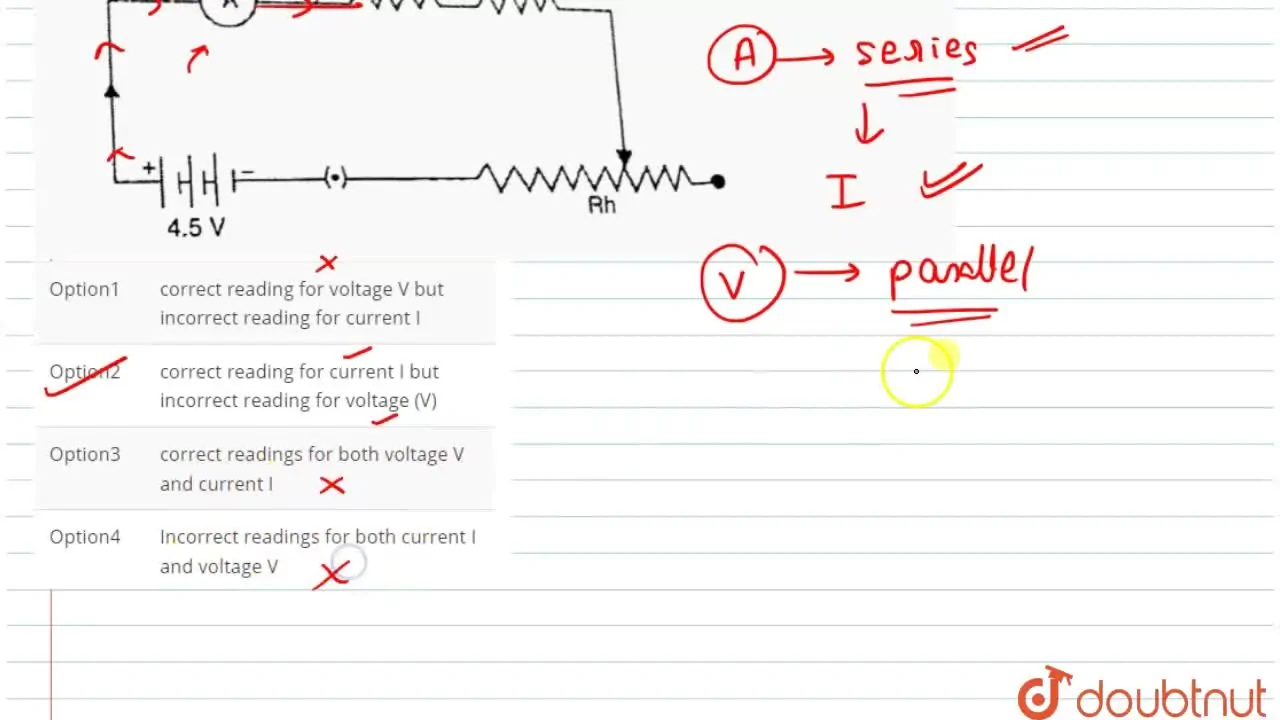 A
A → series
+ −
4.5 V
Rh
↓
I
V → parallel
Option1 correct reading for voltage V but
incorrect reading for current I
Option2 correct reading for current I but
incorrect reading for voltage (V)
Option3 correct readings for both voltage V
and current I
Option4 Incorrect readings for both current I
and voltage V
doubtnut